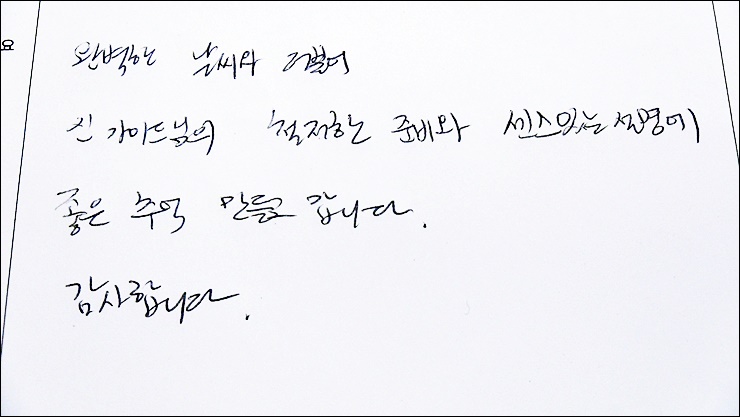 요
완벽한 날씨와 더불어
신 가이드님의 철저한 준비와 센스있는 설명에
좋은 추억 만들고 갑니다.
감사합니다.